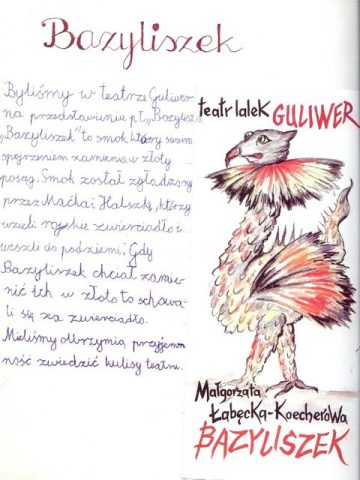 Bazyliszek
Byliśmy w teatrze Guliwer
na przedstawieniu pt. „Bazylisz
„Bazyliszek" to smok który swoim
spojrzeniem zamienia w złoty
posąg. Smok został zgładzony
przez Maćka i Halszkę, którzy
wzieli rajskie zwierciadło i
weszli do podziemi. Gdy
Bazyliszek chciał zamie-
nić ich w złoto to schowa-
li się za zwierciadło.
Mieliśmy olbrzymią przyjemn
ność zwiedzić kulisy teatru.
teatr lalek GULIWER
Małgorzata
Łabęcka-Koecherowa
BAZYLISZEK